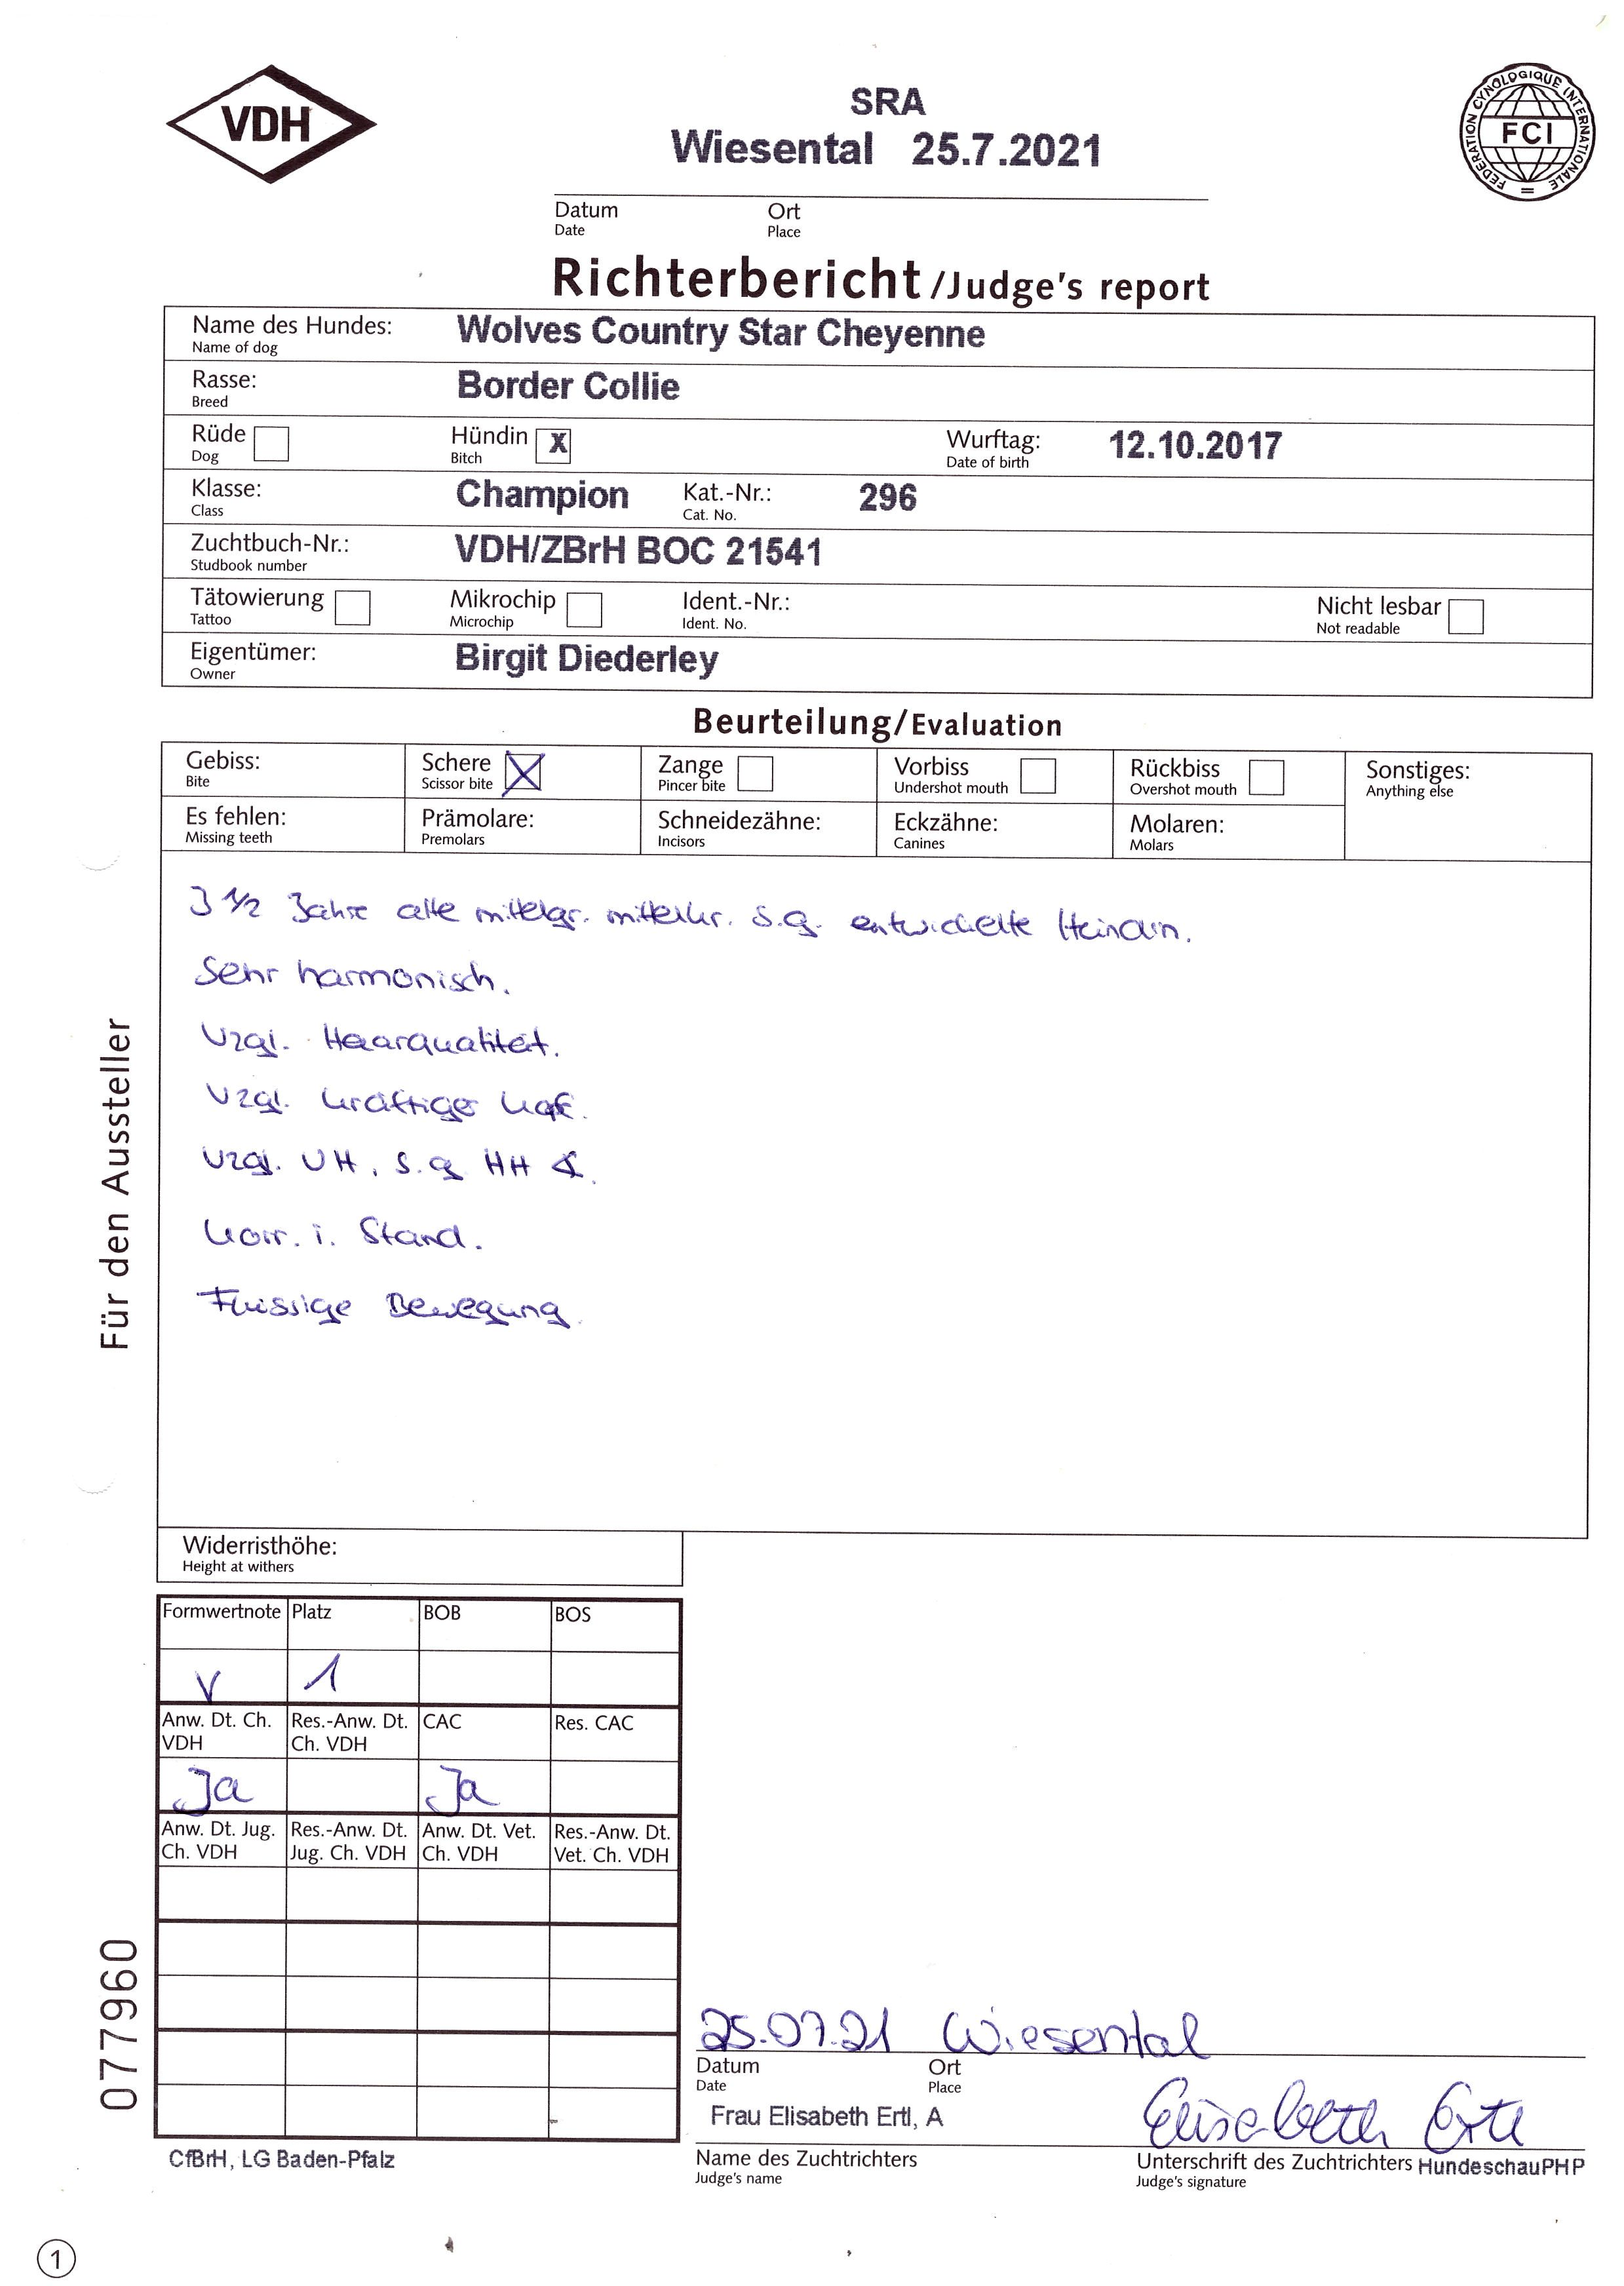 VDH
SRA
Wiesental 25.7.2021
FEDERATION CYNOLOGIQUE INTERNATIONALE
FCI
Datum Ort
Date Place
Richterbericht/Judge's report
Name des Hundes: Wolves Country Star Cheyenne
Name of dog
Rasse: Border Collie
Breed
Rüde Hündin X Wurftag: 12.10.2017
Dog Bitch Date of birth
Klasse: Champion Kat.-Nr.: 296
Class Cat. No.
Zuchtbuch-Nr.: VDH/ZBrH BOC 21541
Studbook number
Tätowierung Mikrochip Ident.-Nr.: Nicht lesbar
Tattoo Microchip Ident. No. Not readable
Eigentümer: Birgit Diederley
Owner
Beurteilung/Evaluation
Gebiss: Schere X Zange Vorbiss Rückbiss Sonstiges:
Bite Scissor bite Pincer bite Undershot mouth Overshot mouth Anything else
Es fehlen: Prämolare: Schneidezähne: Eckzähne: Molaren:
Missing teeth Premolars Incisors Canines Molars
3 1/2 Jahre alte mittelgr. mittelkr. s.g. entwickelte Hündin.
Sehr harmonisch.
Vzgl. Haarqualität.
Vzgl. kräftiger Kopf.
Vzgl. VH, s.g HH ∡.
Korr. i. Stand.
Flüssige Bewegung
Für den Aussteller
Widerristhöhe:
Height at withers
Formwertnote Platz BOB BOS
V 1
Anw. Dt. Ch. Res.-Anw. Dt. CAC Res. CAC
VDH Ch. VDH
Ja Ja
Anw. Dt. Jug. Res.-Anw. Dt. Anw. Dt. Vet. Res.-Anw. Dt.
Ch. VDH Jug. Ch. VDH Ch. VDH Vet. Ch. VDH
077960
25.07.21 Wiesental
Datum Ort
Date Place
Frau Elisabeth Ertl, A Elisabeth Ertl
CfBrH, LG Baden-Pfalz
Name des Zuchtrichters Unterschrift des Zuchtrichters HundeschauPHP
Judge's name Judge's signature
1